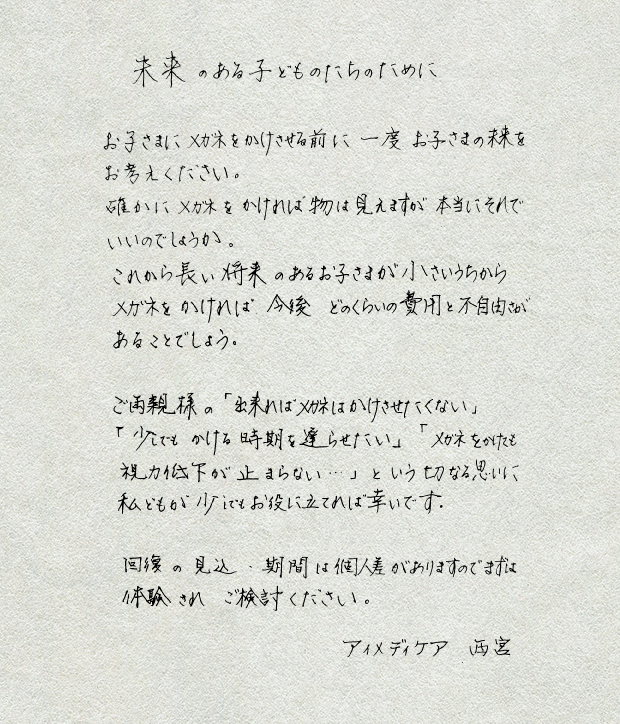 未来のある子どものたちのために
お子さまにメガネをかけさせる前に一度お子さまの未来を
お考えください。
確かにメガネをかければ物は見えますが本当にそれで
いいのでしょうか。
これから長い将来のあるお子さまが小さいうちから
メガネをかければ今後どのくらいの費用と不自由さが
あることでしょう。
ご両親様の「出来ればメガネはかけさせたくない」
「少しでもかける時期を遅らせたい」「メガネをかけても
視力低下が止まらない…」という切なる思いに
私どもが少しでもお役に立てれば幸いです.
回復の見込・期間は個人差がありますのでまずは
体験されご検討ください。
アイメディケア 西宮